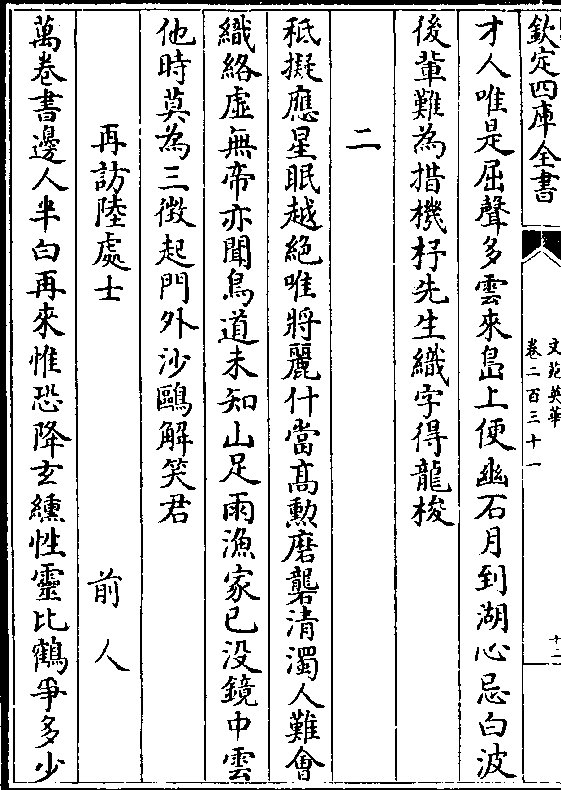 欽定四庫全書
文苑英華
卷二百三十一
十一
才人唯是屈聲多雲來島上便幽石月到湖心忌白波
後輩難為措機杼先生織字得龍梭
二
秪擬應星眠越絶唯將麗什當髙勲磨礱清濁人難㑹
織絡虚無帝亦聞鳥道未知山足雨漁家已没鏡中雲
他時莫為三徴起門外沙鷗解笑君
再訪陸處士
前人
萬卷書邊人半白再來惟恐降玄纁性靈比鶴爭多少